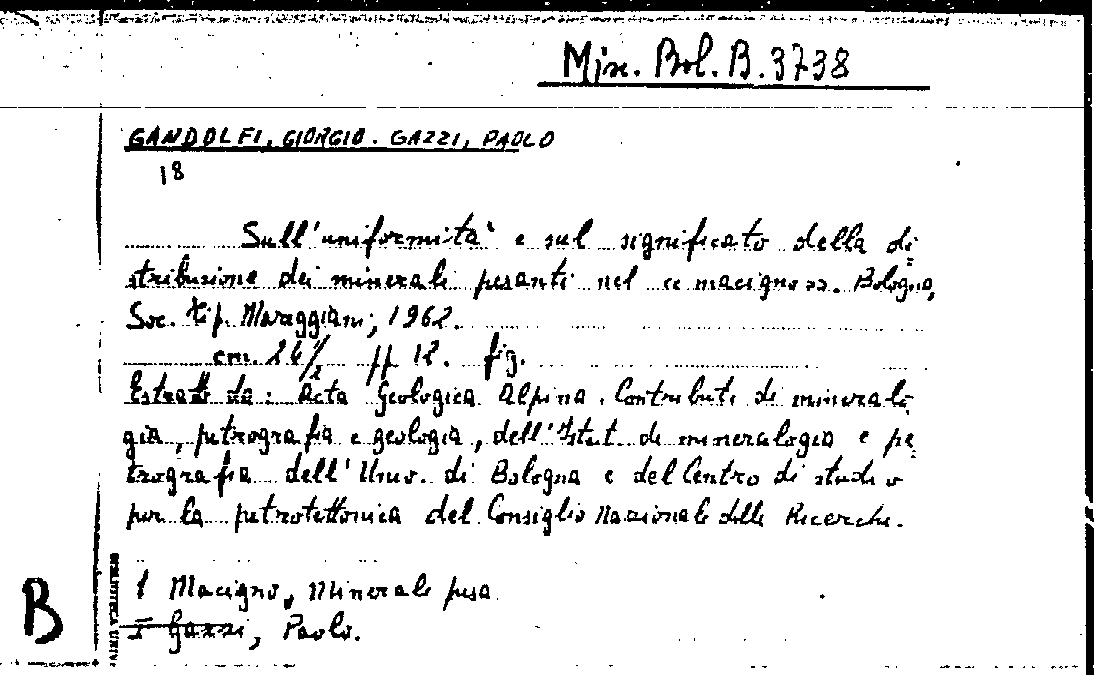 Misc. Bol. B. 3738
GANDOLFI, GIORGIO. GAZZI, PAOLO
18
Sull'uniformità e sul significato della di
stribuzione dei minerali pesanti nel « macigno ». Bologna,
Soc. tip. Mareggiani, 1962.
cm. 24 1/2 pp 12. fig.
Estratto da: Acta Geologica Alpina. Contributi di mineralo
gia, petrografia e geologia, dell'Istit. di mineralogia e pe
trografia dell'Univ. di Bologna e del Centro di studio
per la petrotettonica del Consiglio Nazionale delle Ricerche.
1 Macigno, Minerale pesa
I Gazzi, Paolo.
B
BIBLIOTECA UNIV.